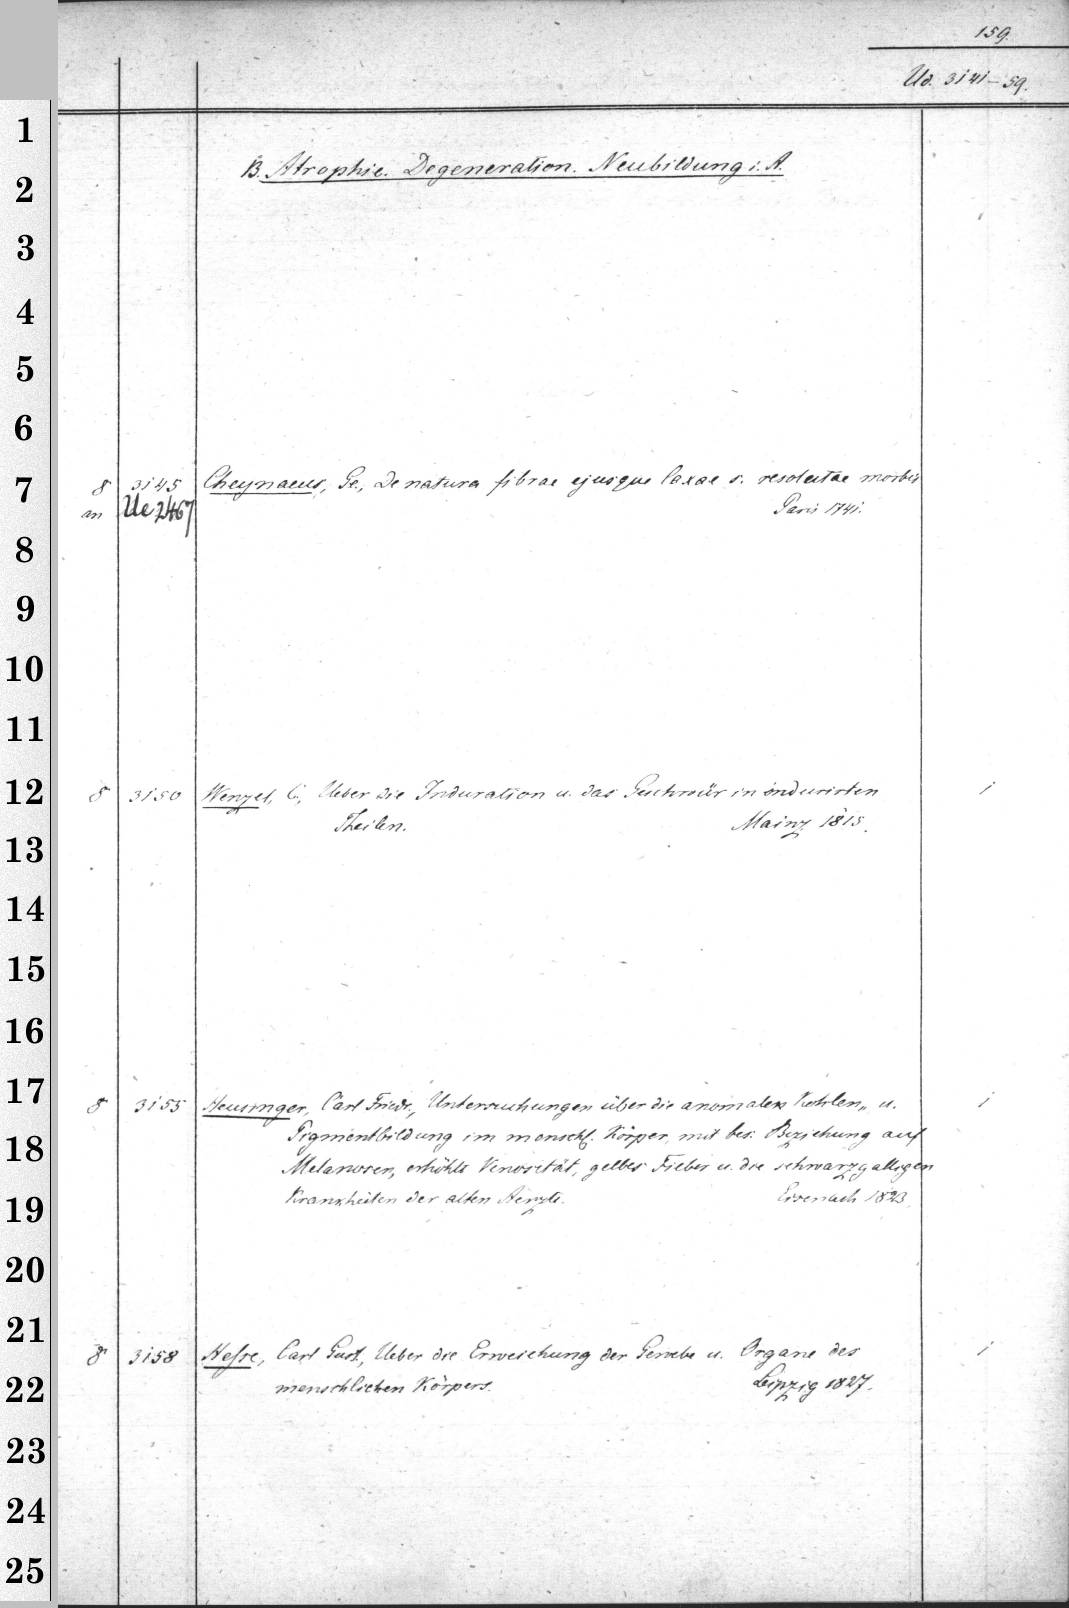 159.
Ud. 3141-59.
1
B. Atrophie. Degeneration. Neubildung i. A.
2
3
4
5
6
7 8 3145 Cheynaeus, Ge., De natura fibrae ejusque laxae s. resolutae morbis
an Ue 2467 Paris 1741.
8
9
10
11
12 8 3150 Wenzel, C., Ueber die Induration u. das Geschwür in indurirten 1
Theilen. Mainz 1815.
13
14
15
16
17 8 3155 Heusinger, Carl Friedr., Untersuchungen über die anomalen Kohlen- u. 1
Pigmentbildung im menschl. Körper, mit bes. Beziehung auf
18
Melanosen, erhöhte Venosität, gelbes Fieber u. die schwarzgalligen
Krankheiten der alten Aerzte. Eisenach 1823.
19
20
21
8 3158 Hesse, Carl Gust., Ueber die Erweichung der Gewebe u. Organe des 1
22 menschlichen Körpers. Leipzig 1827.
23
24
25